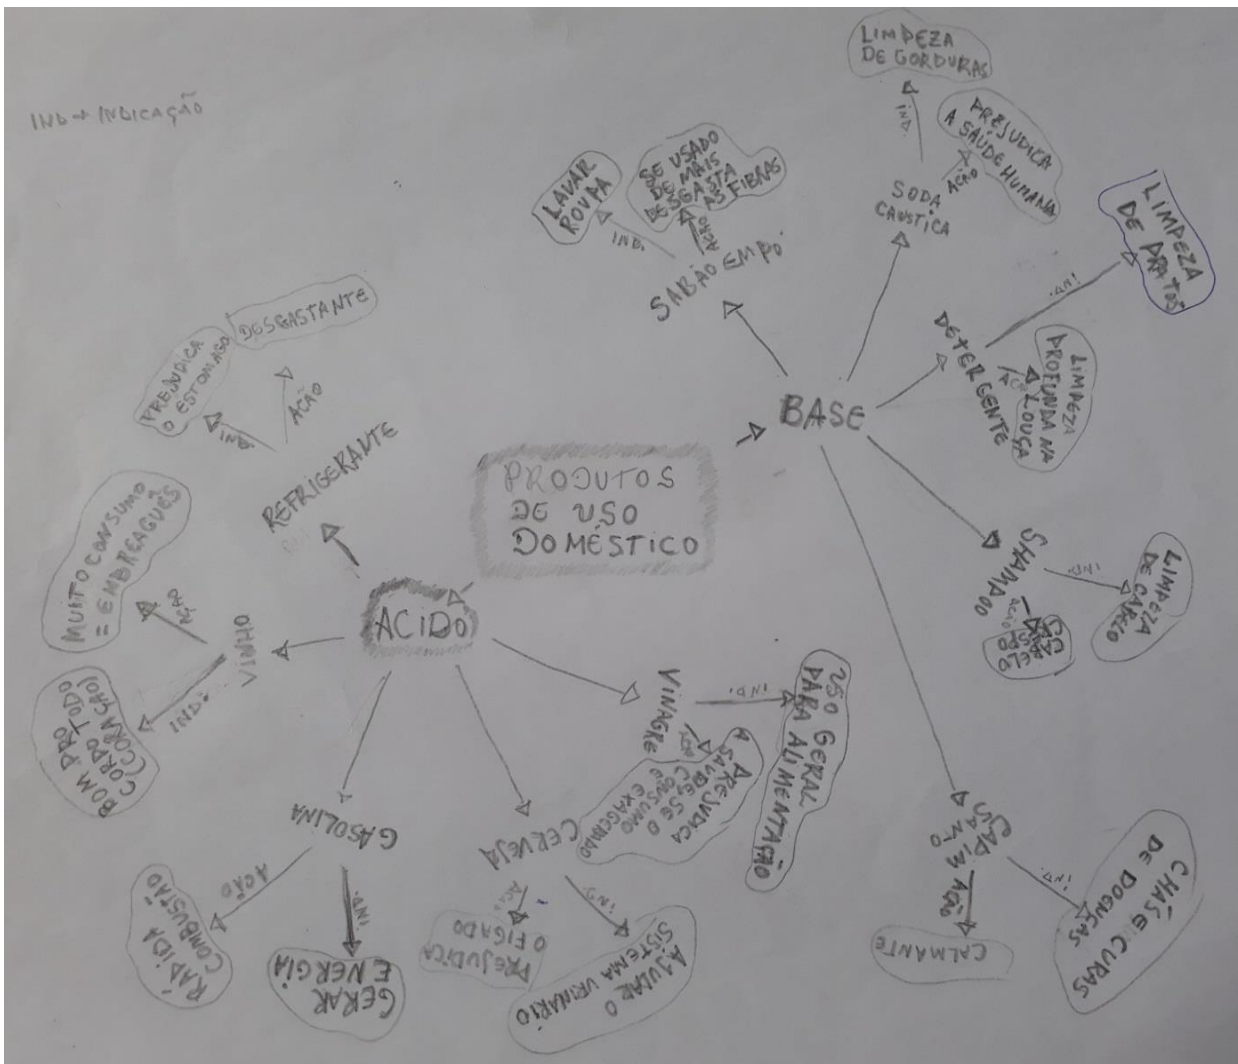 IND → INDICAÇÃO
PRODUTOS
DE USO
DOMÉSTICO
BASE
SABÃO EM PÓ
IND.
LAVAR
ROUPA
AÇÃO
SE USADO
DE MAIS
DESGASTA
AS FIBRAS
SODA
CAUSTICA
IND.
LIMPEZA
DE GORDURAS
AÇÃO
PREJUDICA
A SAÚDE HUMANA
DETERGENTE
IND.
LIMPEZA
DE PRATOS
LIMPEZA
PROFUNDA NA
LOUÇA
SHAMPOO
IND.
LIMPEZA
DE CABELO
AÇÃO
CABELO
CAPIM
SANTO
IND.
CHÁS E CURAS
DE DOENÇAS
AÇÃO
CALMANTE
ACIDO
REFRIGERANTE
IND.
PREJUDICA
O ESTOMAGO
AÇÃO
DESGASTANTE
VINHO
AÇÃO
MUITO CONSUMO
= EMBREAGUÊS
IND.
BOM PRO
CORPO TODO
(CORAÇÃO)
GASOLINA
AÇÃO
RÁPIDA
COMBUSTÃO
IND.
GERAR
ENERGIA
CERVEJA
AÇÃO
PREJUDICA
O FIGADO
IND.
AJUDAR O
SISTEMA URINARIO
VINAGRE
IND.
USO GERAL
PARA ALIMENTAÇÃO
AÇÃO
PREJUDICA
A SAUDE, SE O
CONSUMO
É EXAGERADO